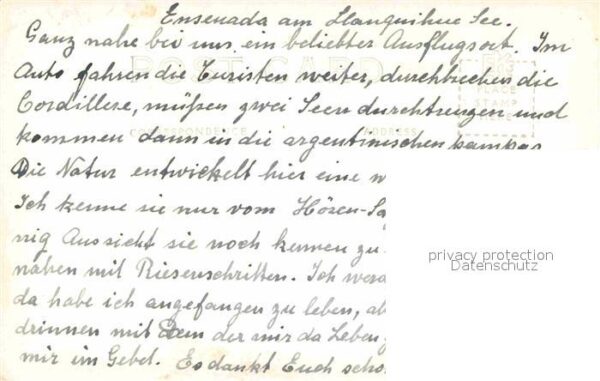 Ensenada am Llanquihue See.
Ganz nahe bei uns, ein beliebter Ausflugsort. Im
Auto fahren die Turisten weiter, durchbrechen die
Cordillere, müßen zwei Seen durchtrengen und
kommen dann in die argentinischen pampas
Die Natur entwickelt hier eine
Ich kenne sie nur vom Hören-Sa
nig Aussicht sie noch kennen zu
nahen mit Riesenschritten. Ich werd
da habe ich angefangen zu leben, ab
drinnen mit Dem der mir da Leben
mir im Gebet. Es dankt Euch scho
POST CARD
PLACE
STAMP
HERE
CORRESPONDENCE
ADDRESS
privacy protection
Datenschutz